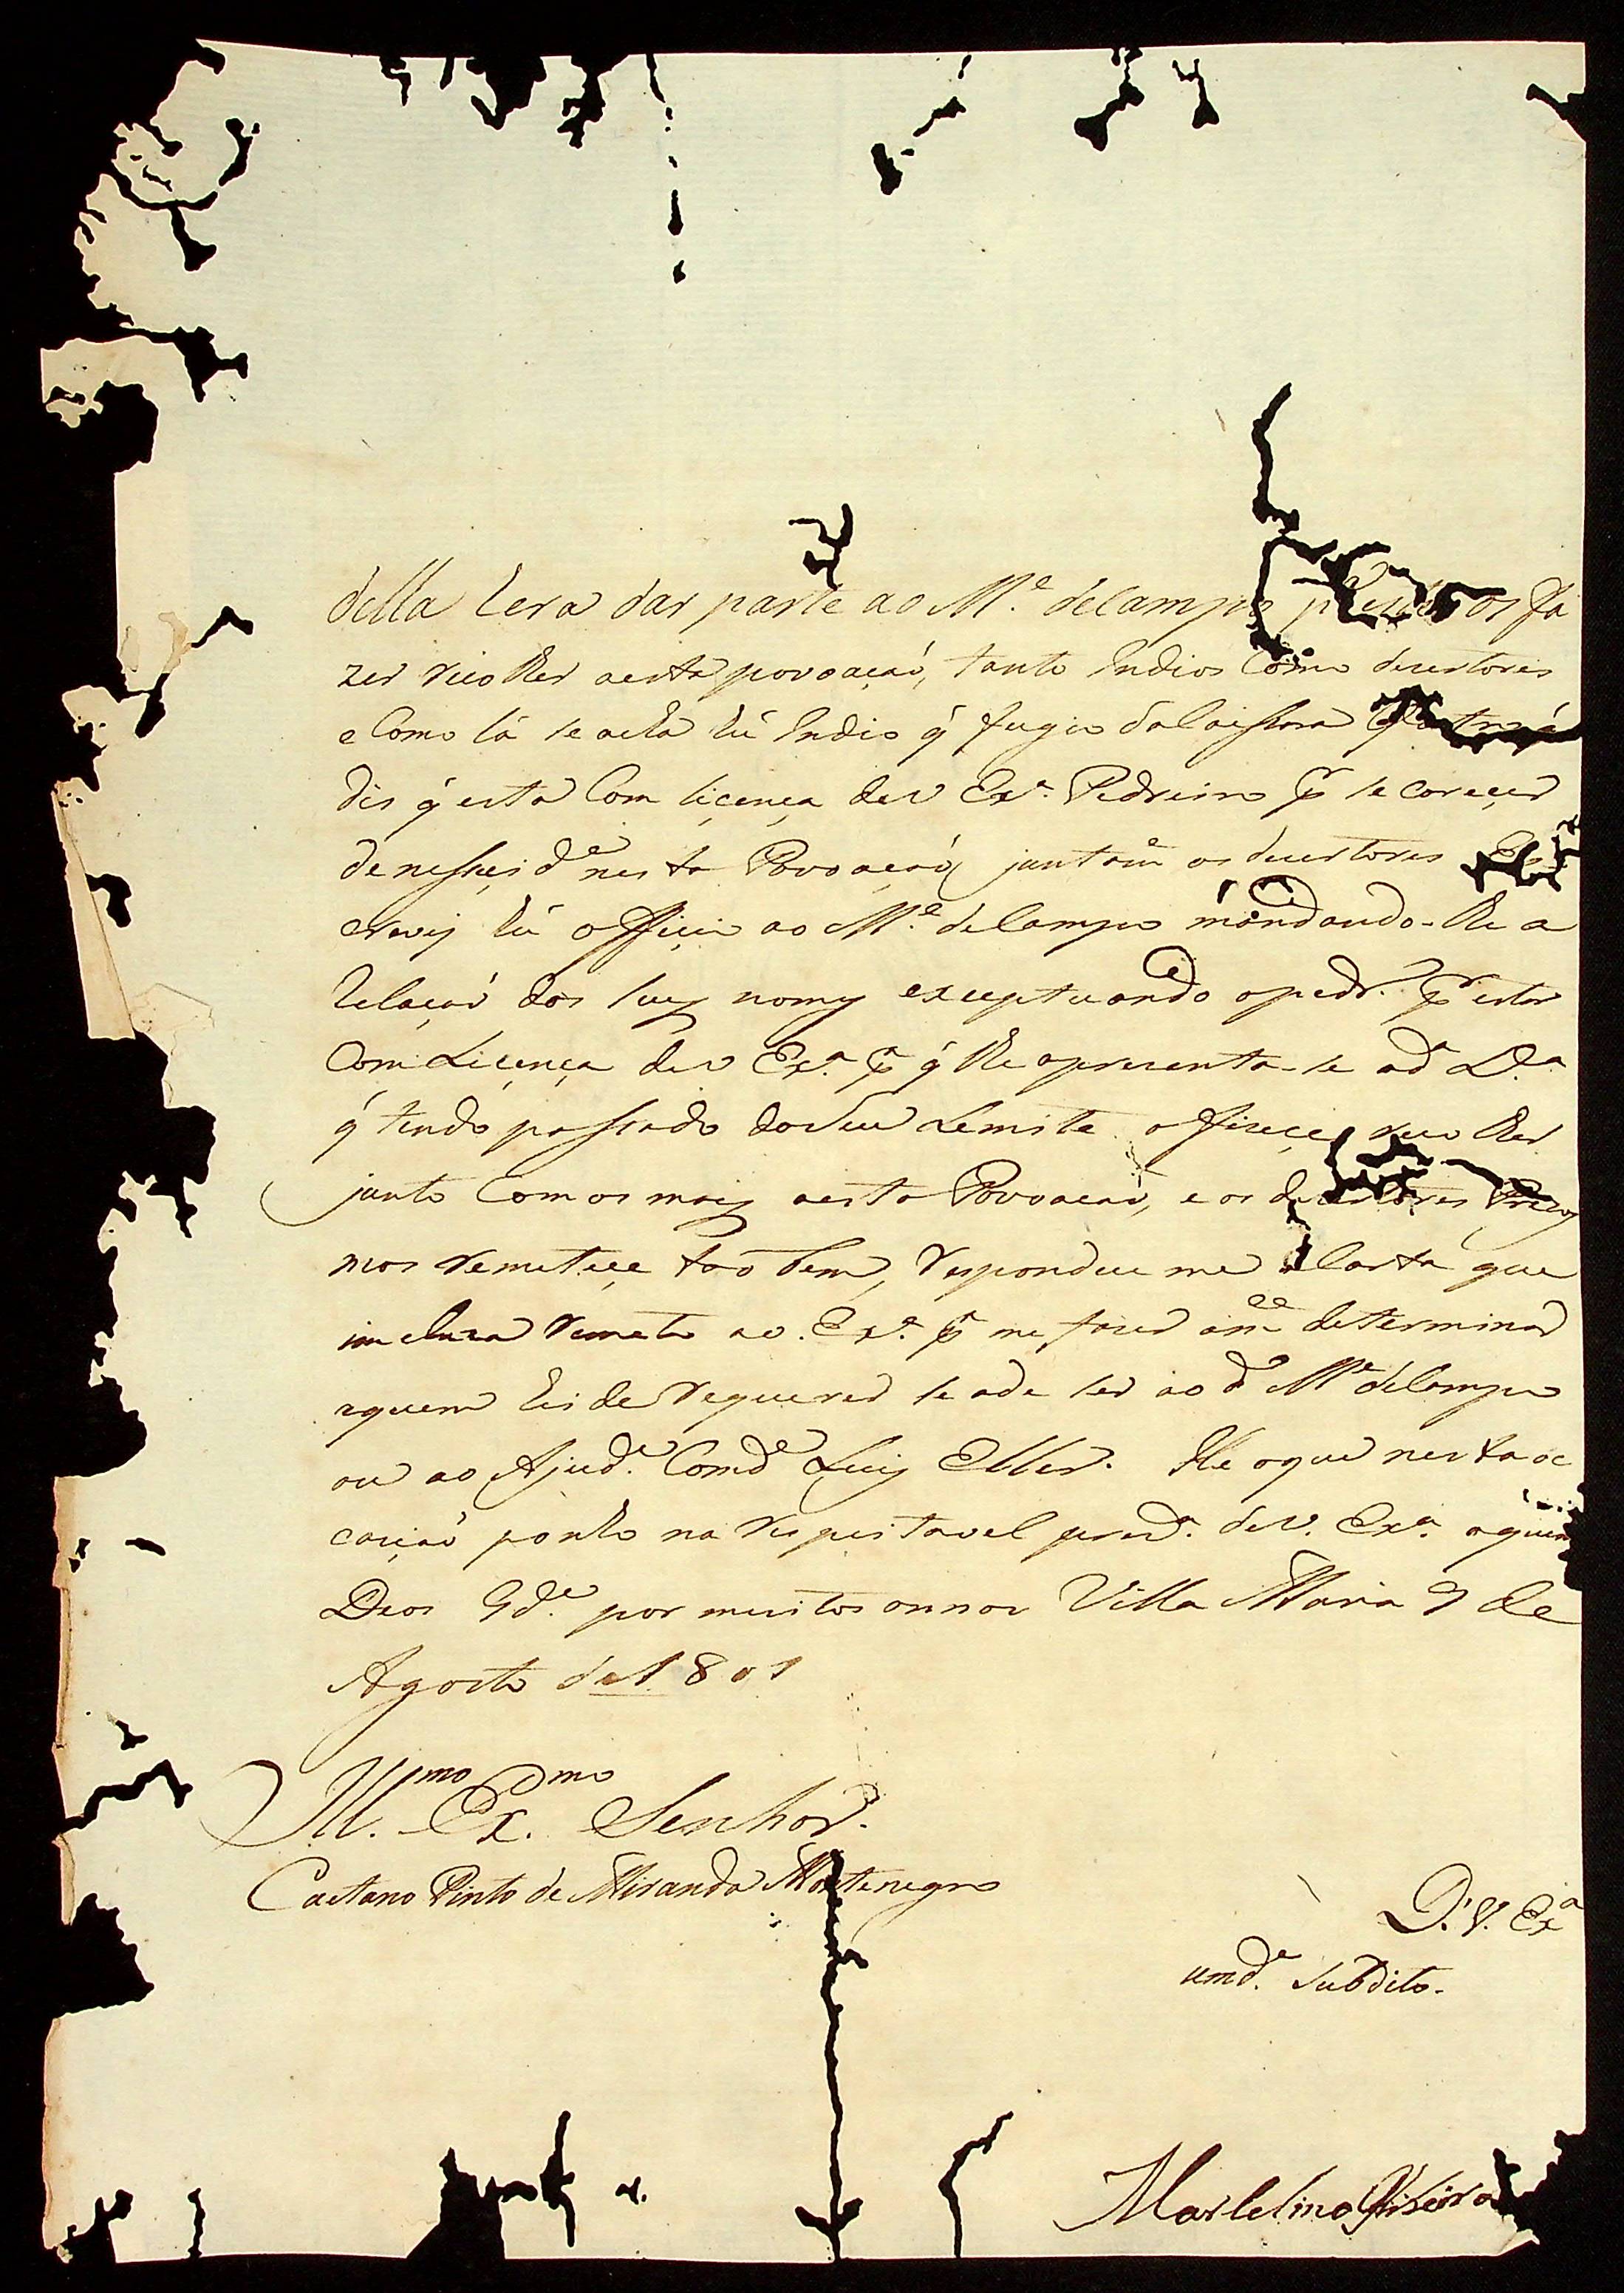 della sera dar parte ao M.e de Campo p.a estes os fa
zer recolher a esta povoaçaó, tanto Indios Como decertores
e Como lá se acha hú Indio q́ fugio da Caissara
dis q́ esta Com liçença de V Ex.a Pedreiro p.a se coreçer
de nessçesid.e nesta Povoaçaó juntam.e os decertores
envij hú offiçio ao M.e de Campo mandando-lhe a
Relaçaó dos suy nomy exceptuando o pedr.o p.r estar
Com Liçença de V Ex.a p.a q́ lhe aprezenta-se a d.a L.a
q́ tendo passado do seu Lemite o fizeçe recolher
junto Com os maiy a esta Povoaçaó, e os decertores
mos remeteçe taõ bem, respondeu me a Carta que
incluza remeto a V. Ex.a p.a me fazer a m.ce determinar
a quem hei de requerer se a de ser ao d.o M.e de Campo
ou ao Ajud.e Com.de Luiy Eller. He o que nesta oc
caziaó ponho na respeitavel prez.a de V. Ex.a a quem
Deos G.de por muitos annos Villa Maria 9 de
Agosto de 1801
Ill.mo Ex.mo Senhor.
Caetano Pinto de Miranda Montenegro
D. V. Ex.a
umd.e Subdito.
Marcelino Ribeiro